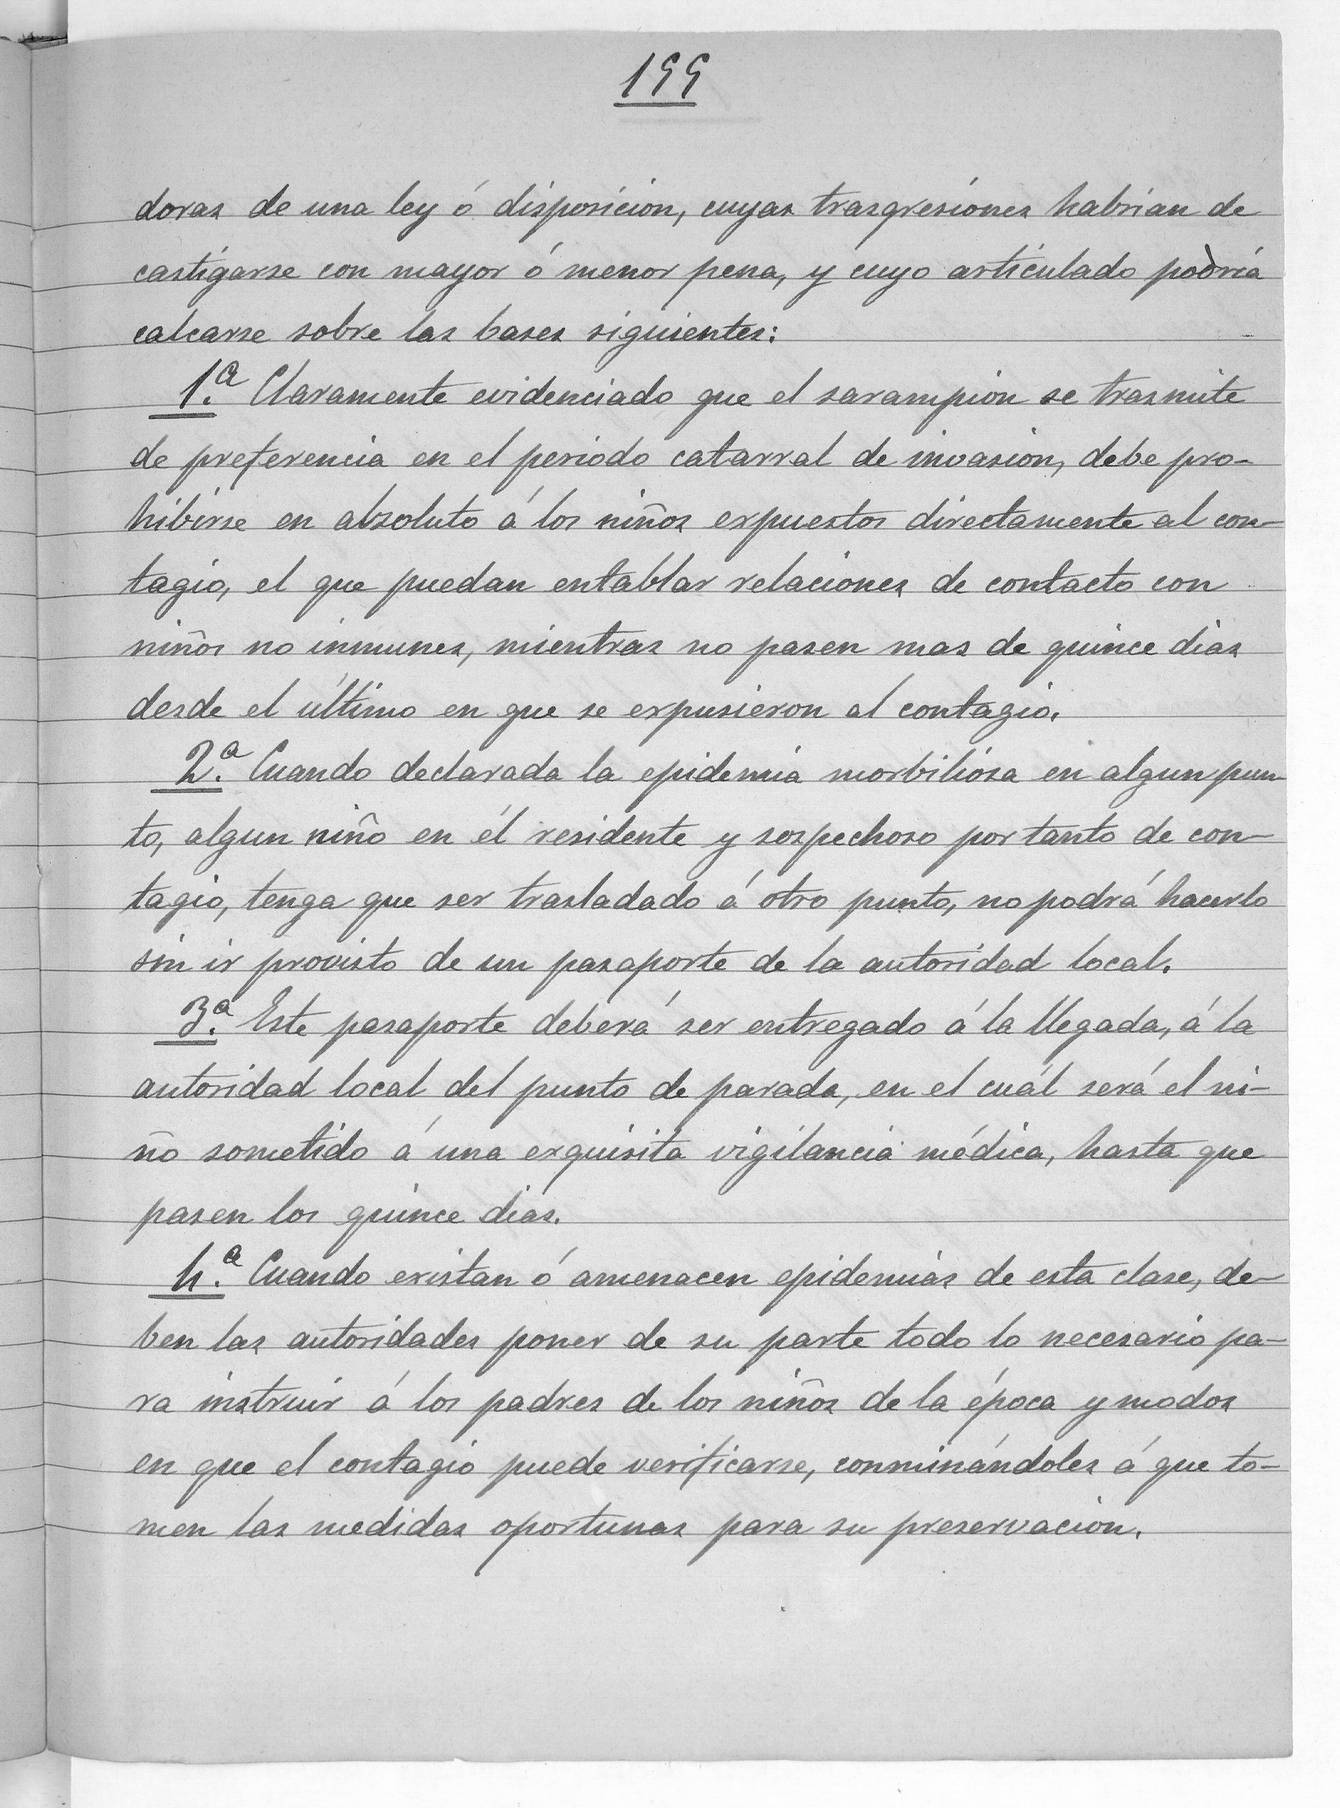 199
doras de una ley ó disposicion, cuyas trasgresiones habrian de
castigarse con mayor ó menor pena, y cuyo articulado podría
calcarse sobre las bases siguientes:
1.ª Claramente evidenciado que el sarampion se trasmite
de preferencia en el periodo catarral de invasion, debe pro-
hibirse en absoluto á los niños expuestos directamente al con-
tagio, el que puedan entablar relaciones de contacto con
niños no inmunes, mientras no pasen mas de quince dias
desde el último en que se expusieron al contagio.
2.ª Cuando declarada la epidemia morbiliosa en algun pun-
to, algun niño en él residente y sospechoso por tanto de con-
tagio, tenga que ser trasladado á otro punto, no podrá hacerlo
sin ir provisto de un pasaporte de la autoridad local.
3.ª Este pasaporte deberá ser entregado á la llegada, á la
autoridad local del punto de parada, en el cuál será el ni-
ño sometido á una exquisita vigilancia médica, hasta que
pasen los quince dias.
4.ª Cuando existan ó amenacen epidemias de esta clase, de-
ben las autoridades poner de su parte todo lo necesario pa-
ra instruir á los padres de los niños de la época y modos
en que el contagio puede verificarse, conminándoles á que to-
men las medidas oportunas para su preservacion.